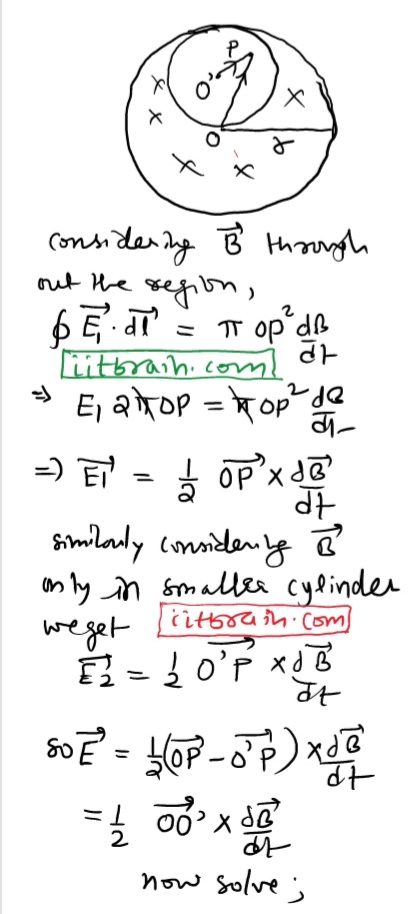 P
O'
O
r
considering B⃗ through
out the region,
∮ E₁⃗ · dl⃗ = π OP² dB/dt
iitbrain.com
⇒ E₁ 2πOP = πOP² dB/dt
⇒) E₁⃗ = 1/2 OP⃗ × dB⃗/dt
similarly considering B⃗
only in smaller cylinder
we get iitbrain.com
E₂⃗ = 1/2 O'P⃗ × dB⃗/dt
so E⃗ = 1/2(OP⃗ - O'P⃗) × dB⃗/dt
= 1/2 OO'⃗ × dB⃗/dt
now solve;